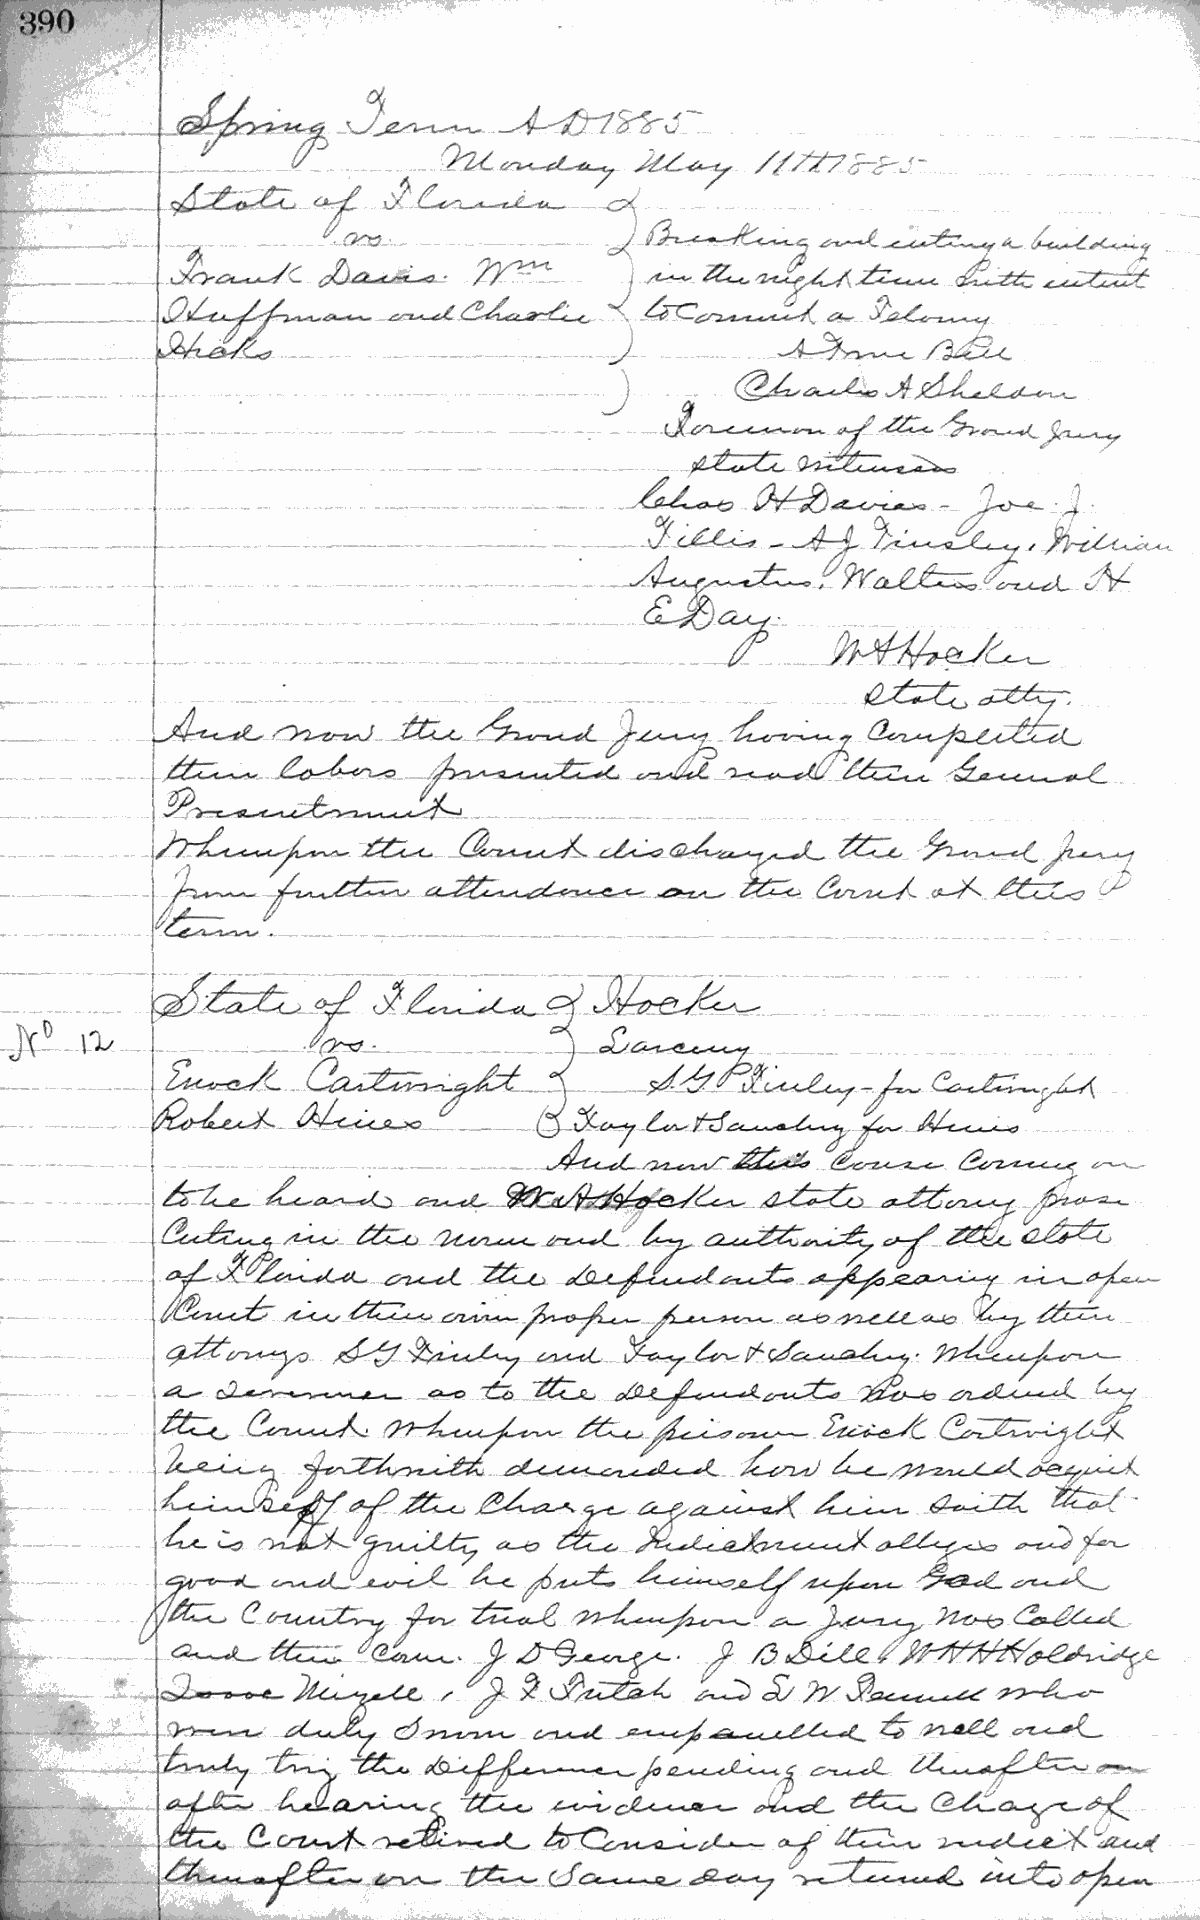 390
Spring Term A D 1885
Monday May 11th 1885
State of Florida
vs.
Breaking and entering a building
Frank Davis. Wm
in the night time with intent
Huffman and Charlie
to Commit a Felony
Hicks
A True Bill
Charles A Sheldon
Foreman of the Grand Jury
State Witnesses
Chas H Davies - Joe J.
Tillis - A J Tinsley, William
Augustus, Walters and H
E Day.
W A Hocker
State atty.
And now the Grand Jury having Completed
their labors presented and read their General
Presentment
Whereupon the Court discharged the Grand Jury
from further attendance on the Court at this
term.
State of Florida Hocker
No 12
vs. Larceny
Enock Cartwright S. G Finley - for Cartwright
Robert Hines Taylor & Sanchez for Hines
And now this Cause Coming on
to be heard and W A Hocker State attorny prose
Cuting in the name and by authority of the State
of Florida and the Defendants appearing in open
Court in their own proper person as well as by their
attornys S G Finley and Taylor & Sanchez. Whereupon
a Severance as to the Defendants was ordered by
the Court. Whereupon the prisoner Enock Cartwright
being forthwith demanded how he would acquit
himself of the Charge against him saith that
he is not guilty as the Indictment alleges and for
good and evil he puts himself upon God and
the Country for trial Whereupon a Jury was Called
and then Came. J D George. J B Dill, W H H Holdridge
Isaac Mizell, J F Futch and who
were duly Sworn and empanelled to well and
truly try the Difference pending and thereafter on
after hearing the evidence and the Charge of
the Court retired to Consider of their verdict and
thereafter on the Same day returned into open